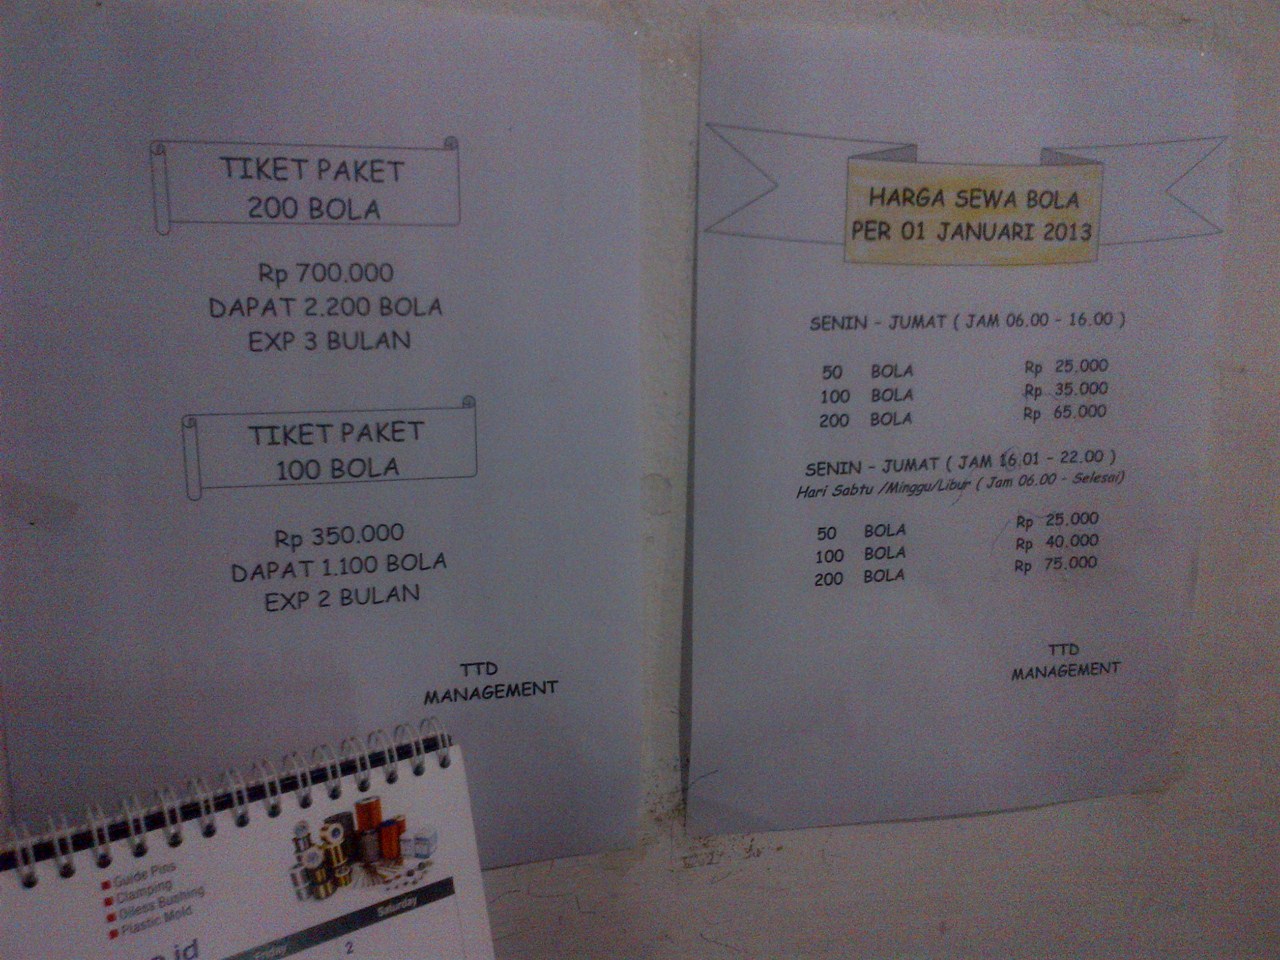 TIKET PAKET
200 BOLA
Rp 700.000
DAPAT 2.200 BOLA
EXP 3 BULAN
TIKET PAKET
100 BOLA
Rp 350.000
DAPAT 1.100 BOLA
EXP 2 BULAN
TTD
MANAGEMENT
HARGA SEWA BOLA
PER 01 JANUARI 2013
SENIN - JUMAT ( JAM 06.00 - 16.00 )
50 BOLA Rp 25.000
100 BOLA Rp 35.000
200 BOLA Rp 65.000
SENIN - JUMAT ( JAM 16.01 - 22.00 )
Hari Sabtu /Minggu/Libur ( Jam 06.00 - Selesai)
50 BOLA Rp 25.000
100 BOLA Rp 40.000
200 BOLA Rp 75.000
TTD
MANAGEMENT
Guide Pins
Clamping
Oiless Bushing
Plastic Mold
.id
Friday
Saturday
2